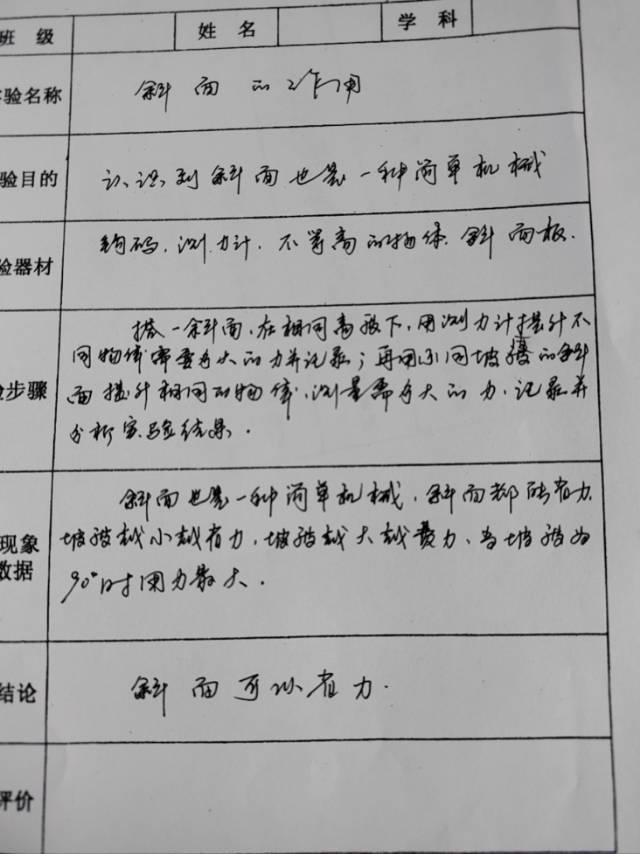 班 级 姓 名 学 科
验名称 斜面的作用
验目的 认识到斜面也是一种简单机械
验器材 钩码、测力计、不等高的物体、斜面板.
步骤 搭一斜面,在相同高度下,用测力计提升不
同物体需要多大的力并记录;再用不同坡度的斜
面提升相同的物体,测量需多大的力,记录并
分析实验结果.
现象 斜面也是一种简单机械,斜面都能省力
数据 坡度越小越省力,坡度越大越费力,当坡度为
90°时用力最大.
结论 斜面可以省力.
评价